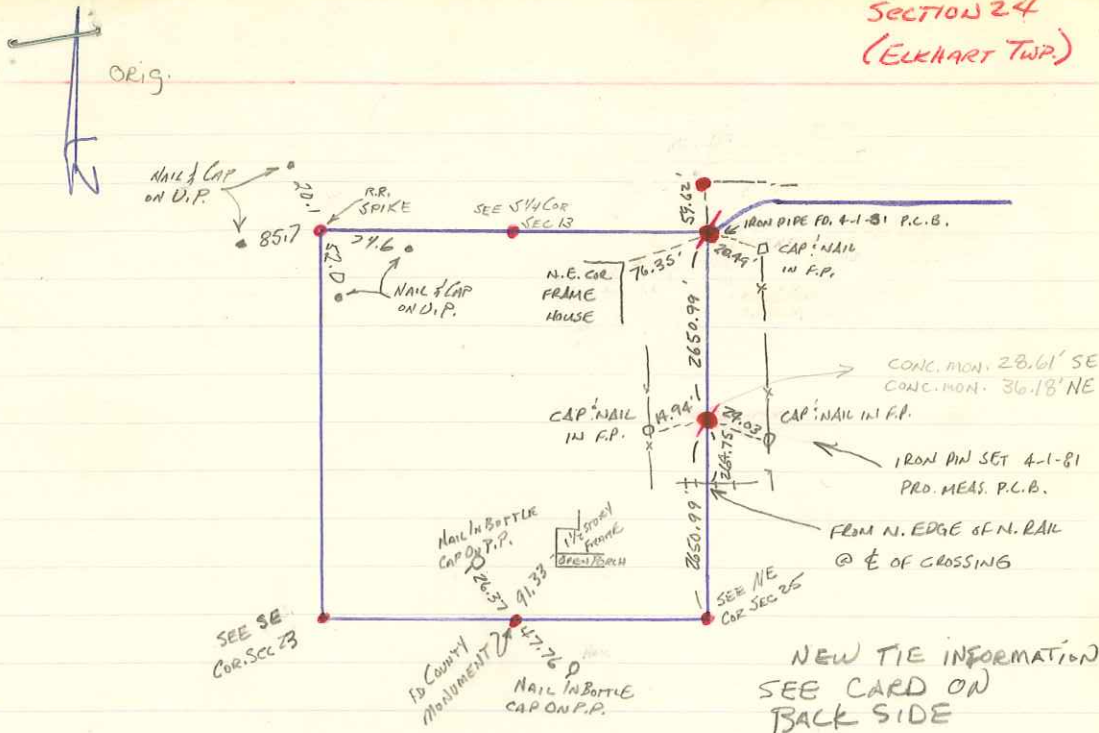 SECTION 24
(ELKHART TWP.)
ORIG.
N
NAIL & CAP
ON U.P.
20.1
85.7
R.R.
SPIKE
24.6
52.0
NAIL & CAP
ON U.P.
SEE S 1/4 COR
SEC 13
54.62'
IRON PIPE FD. 4-1-81 P.C.B.
20.49'
CAP & NAIL
IN F.P.
76.35'
N.E. COR
FRAME
HOUSE
2650.99'
CONC. MON. 28.61' SE
CONC. MON. 36.18' NE
CAP & NAIL
IN F.P.
14.94'
24.03
CAP & NAIL IN F.P.
264.75'
IRON PIN SET 4-1-81
PRO. MEAS. P.C.B.
FROM N. EDGE OF N. RAIL
@ ℄ OF CROSSING
2650.99'
NAIL IN BOTTLE
CAP ON P.P.
26.37
1 1/2 STORY
FRAME
OPEN PORCH
91.33
SEE SE
COR. SEC 23
FD COUNTY
MONUMENT
47.76
NAIL IN BOTTLE
CAP ON P.P.
SEE NE
COR SEC 25
NEW TIE INFORMATION
SEE CARD ON
BACK SIDE